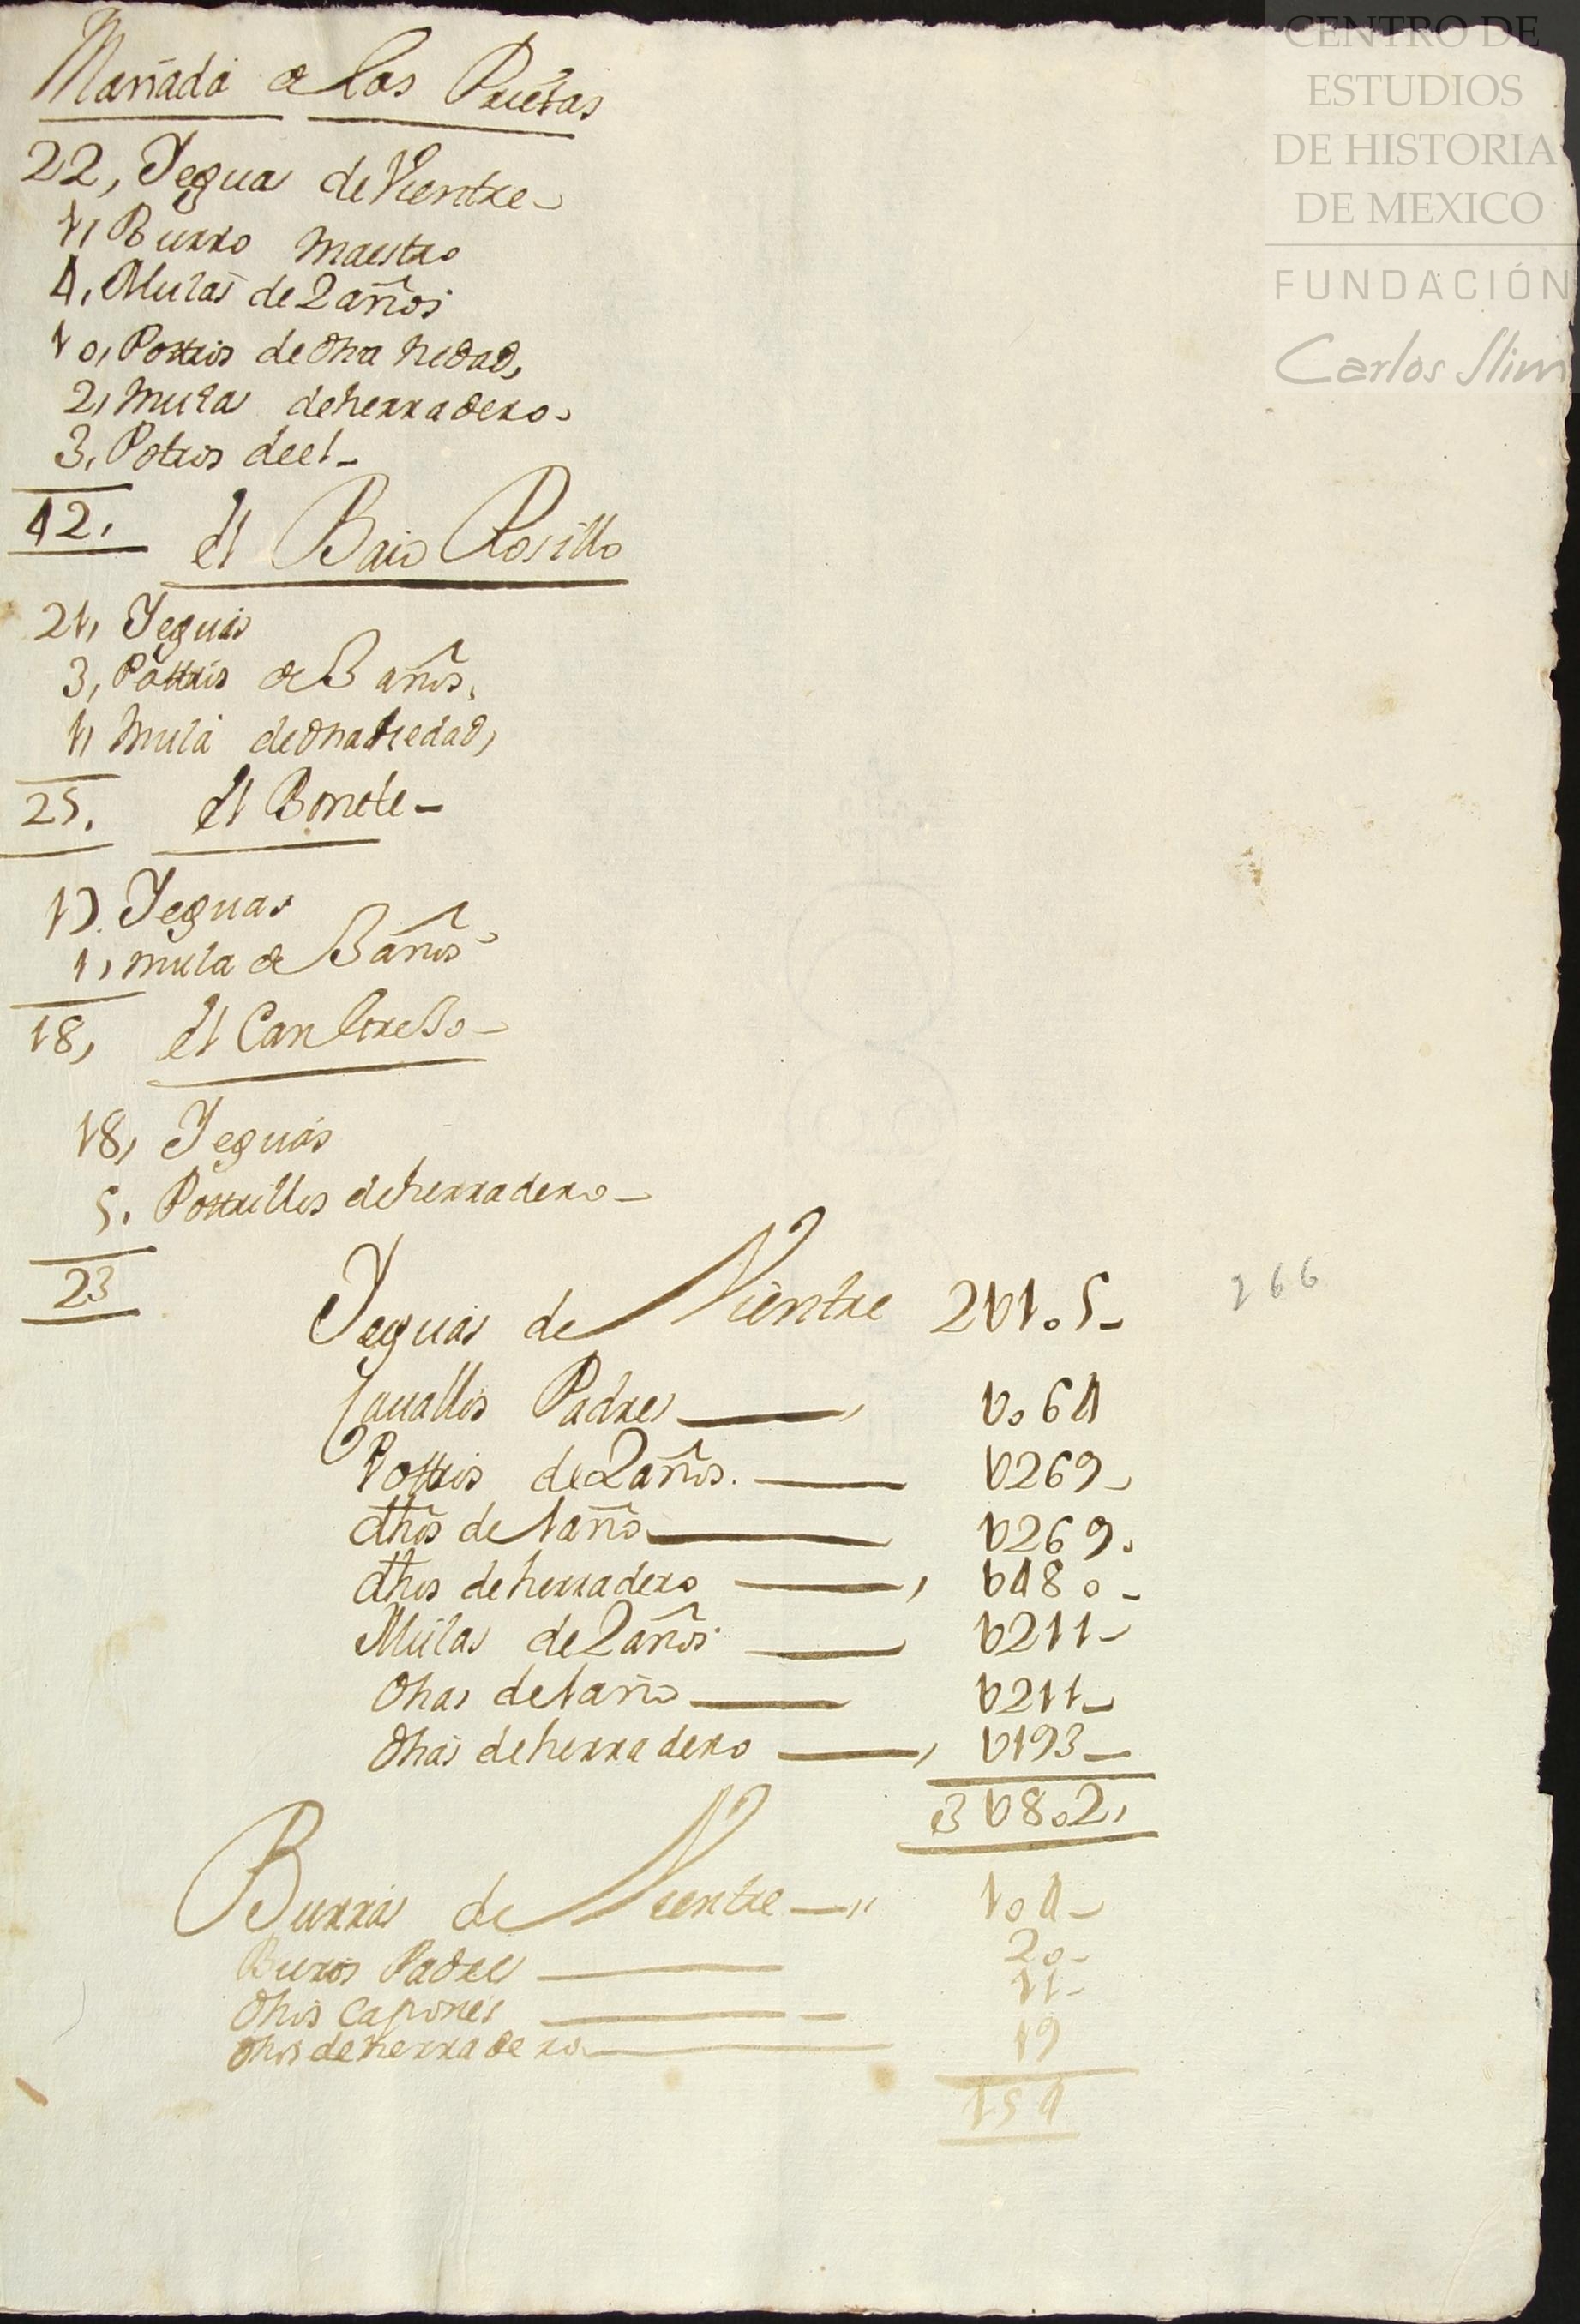 CENTRO DE
ESTUDIOS
DE HISTORIA
DE MEXICO
FUNDACIÓN
Carlos Slim
Mañada de las Prietas
22, Yegua de Vientre
1, Burro Maestro
4, Mulas de 2 años
10, Potros de dha hedad,
2, mula de herradero
3, Potros de el
42.
el Baio Rosillo
21, Yeguas
3, Potros de 3 años,
1, Mula de dha hedad,
25.
el Bonete
17. Yeguas
1, mula de 3 años
18,
18, Yeguas
5. Potrillos de herradero
23
Yeguas de Vientre 2U105
266
Cauallos Padres U064
Potros de 2 años. U269
dhos de 1 año U269.
dhos de herradero U480
Mulas de 2 años U211
dhas de 1 año U211
dhas de herradero U193
3U802,
Burras de Vientre 104
Burros Padres 20
dhos Capones 11
dhos de herradero 19
154